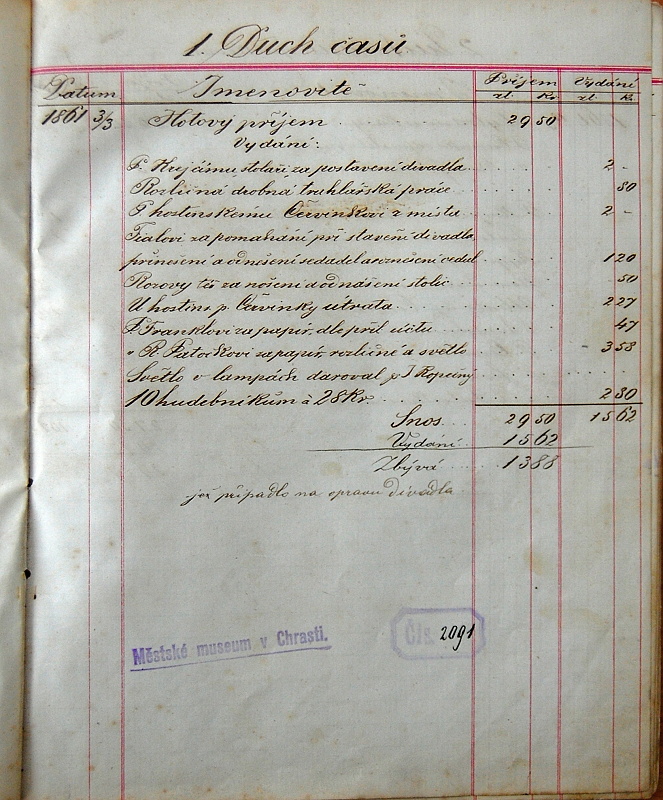 1. Duch časů
Datum Jmenovitě Příjem Vydání
zl. Kr. zl. K.
1861 3/3 Hotový příjem 29 50
Vydání:
P. Krejčímu, stolaři, za postavení divadla 2 -
Rozličná drobná truhlářská práce 80
P. hostinskému Červinkovi z místa 2 -
Fialovi za pomahání při stavění divadla,
přinešení a odnešení sedadel a roznešení cedul 1 20
též za nošení a odnášení stolic 50
U hostins. p. Červinky útrata 2 27
P. Franklovi za papír, dle příl. účtu 47
" R. Patočkovi za papír, rozličné a světlo 3 58
Světlo v lampách daroval p. J. Kopecný
10 hudebníkům à 28 Kr. 2 80
Snos 29 50 15 62
Vydání 15 62
Zbývá 13 88
jež připadlo na opravu divadla
Městské museum v Chrasti.
Čís. 2091